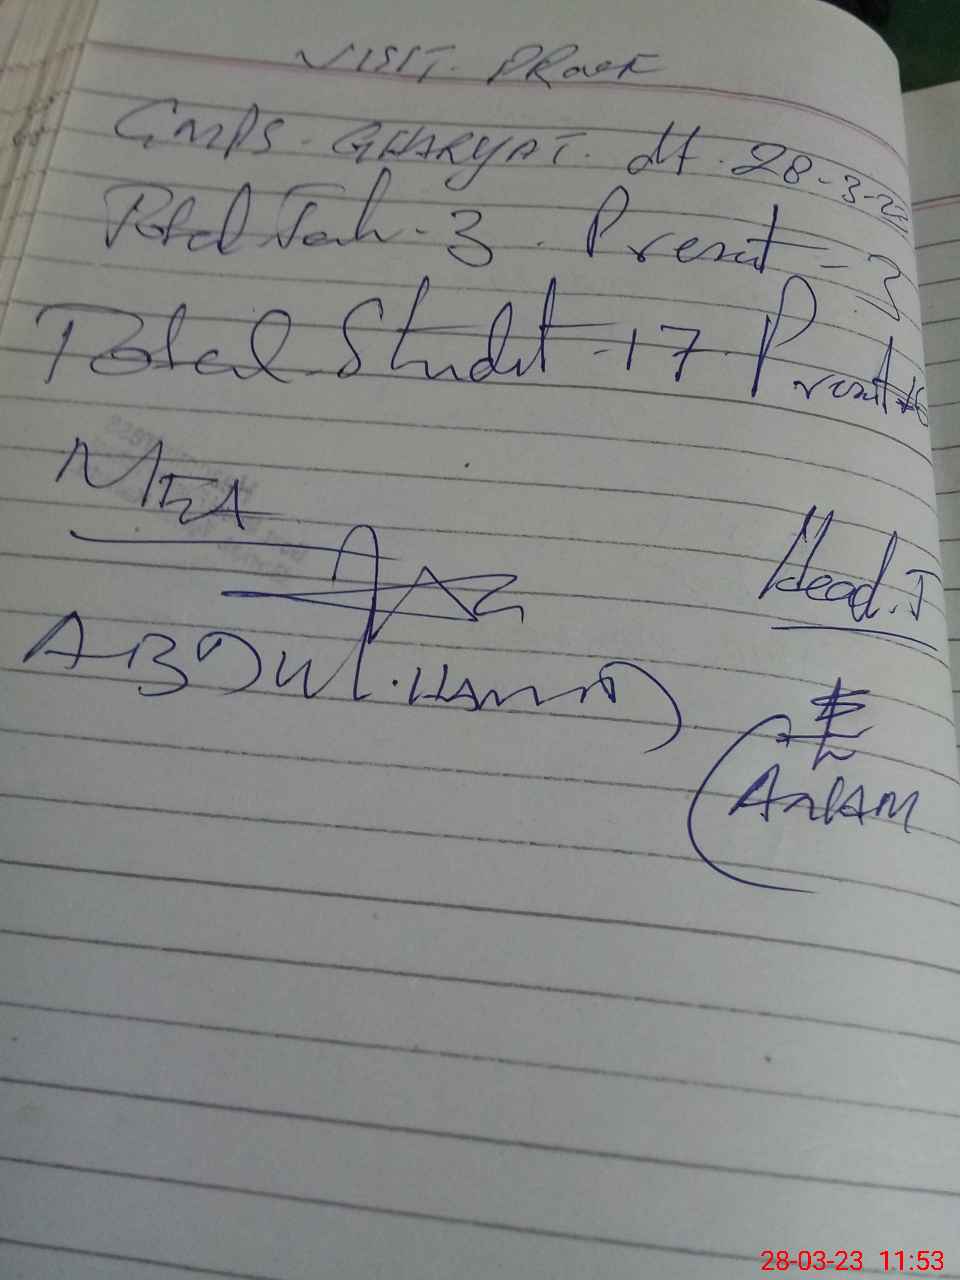 VISIT. PROOF
GMPS. GHARYAT. dt. 28-3-23
Total Teah-3. Present-3
Total. Studet-17. Present-16
MEA
Head.T
ABDUL.HAMID
28-03-23 11:53